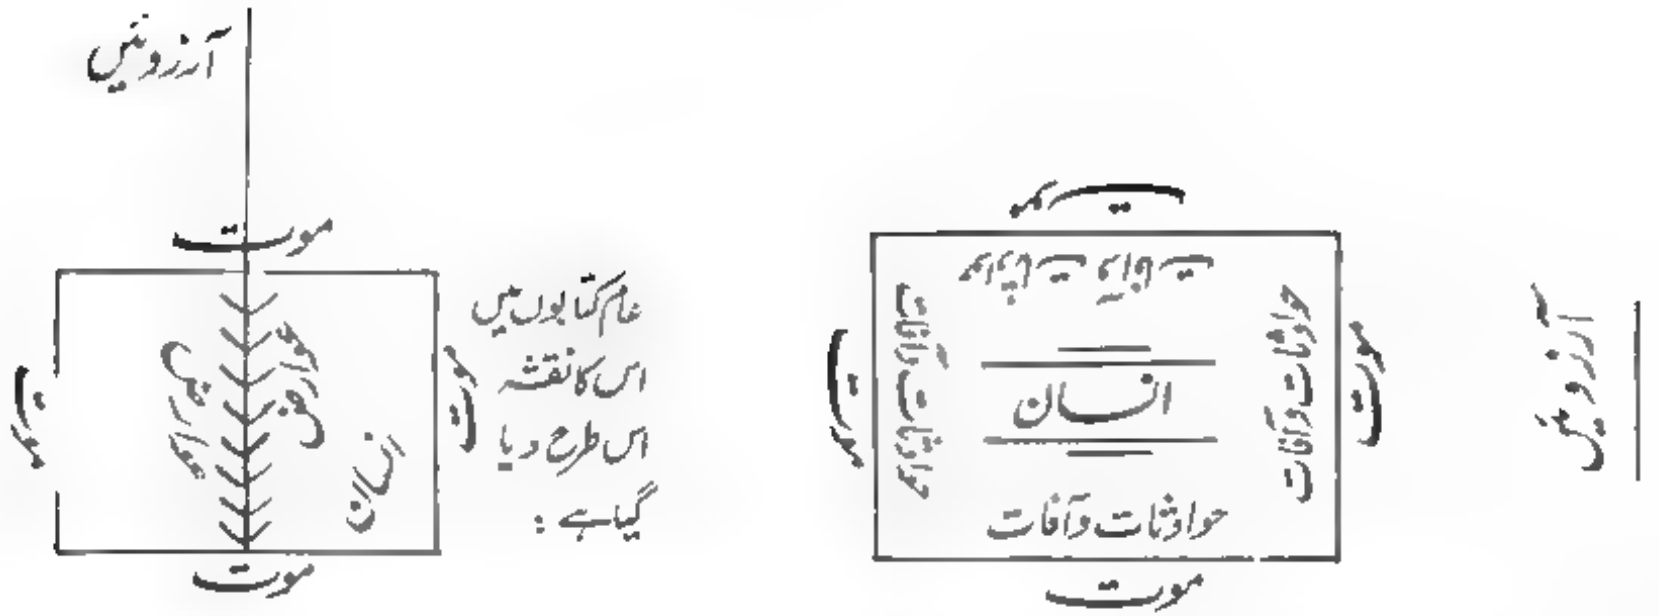 آرزوئیں
موت
حوادثات وآفات
حوادثات وآفات
موت
انسان
حوادثات وآفات
موت
حوادثات وآفات
موت
عام کتابوں میں
اس کا نقشہ
اس طرح دیا
گیا ہے :
آرزوئیں
موت
موت
عوارض
انسان
موت
موت